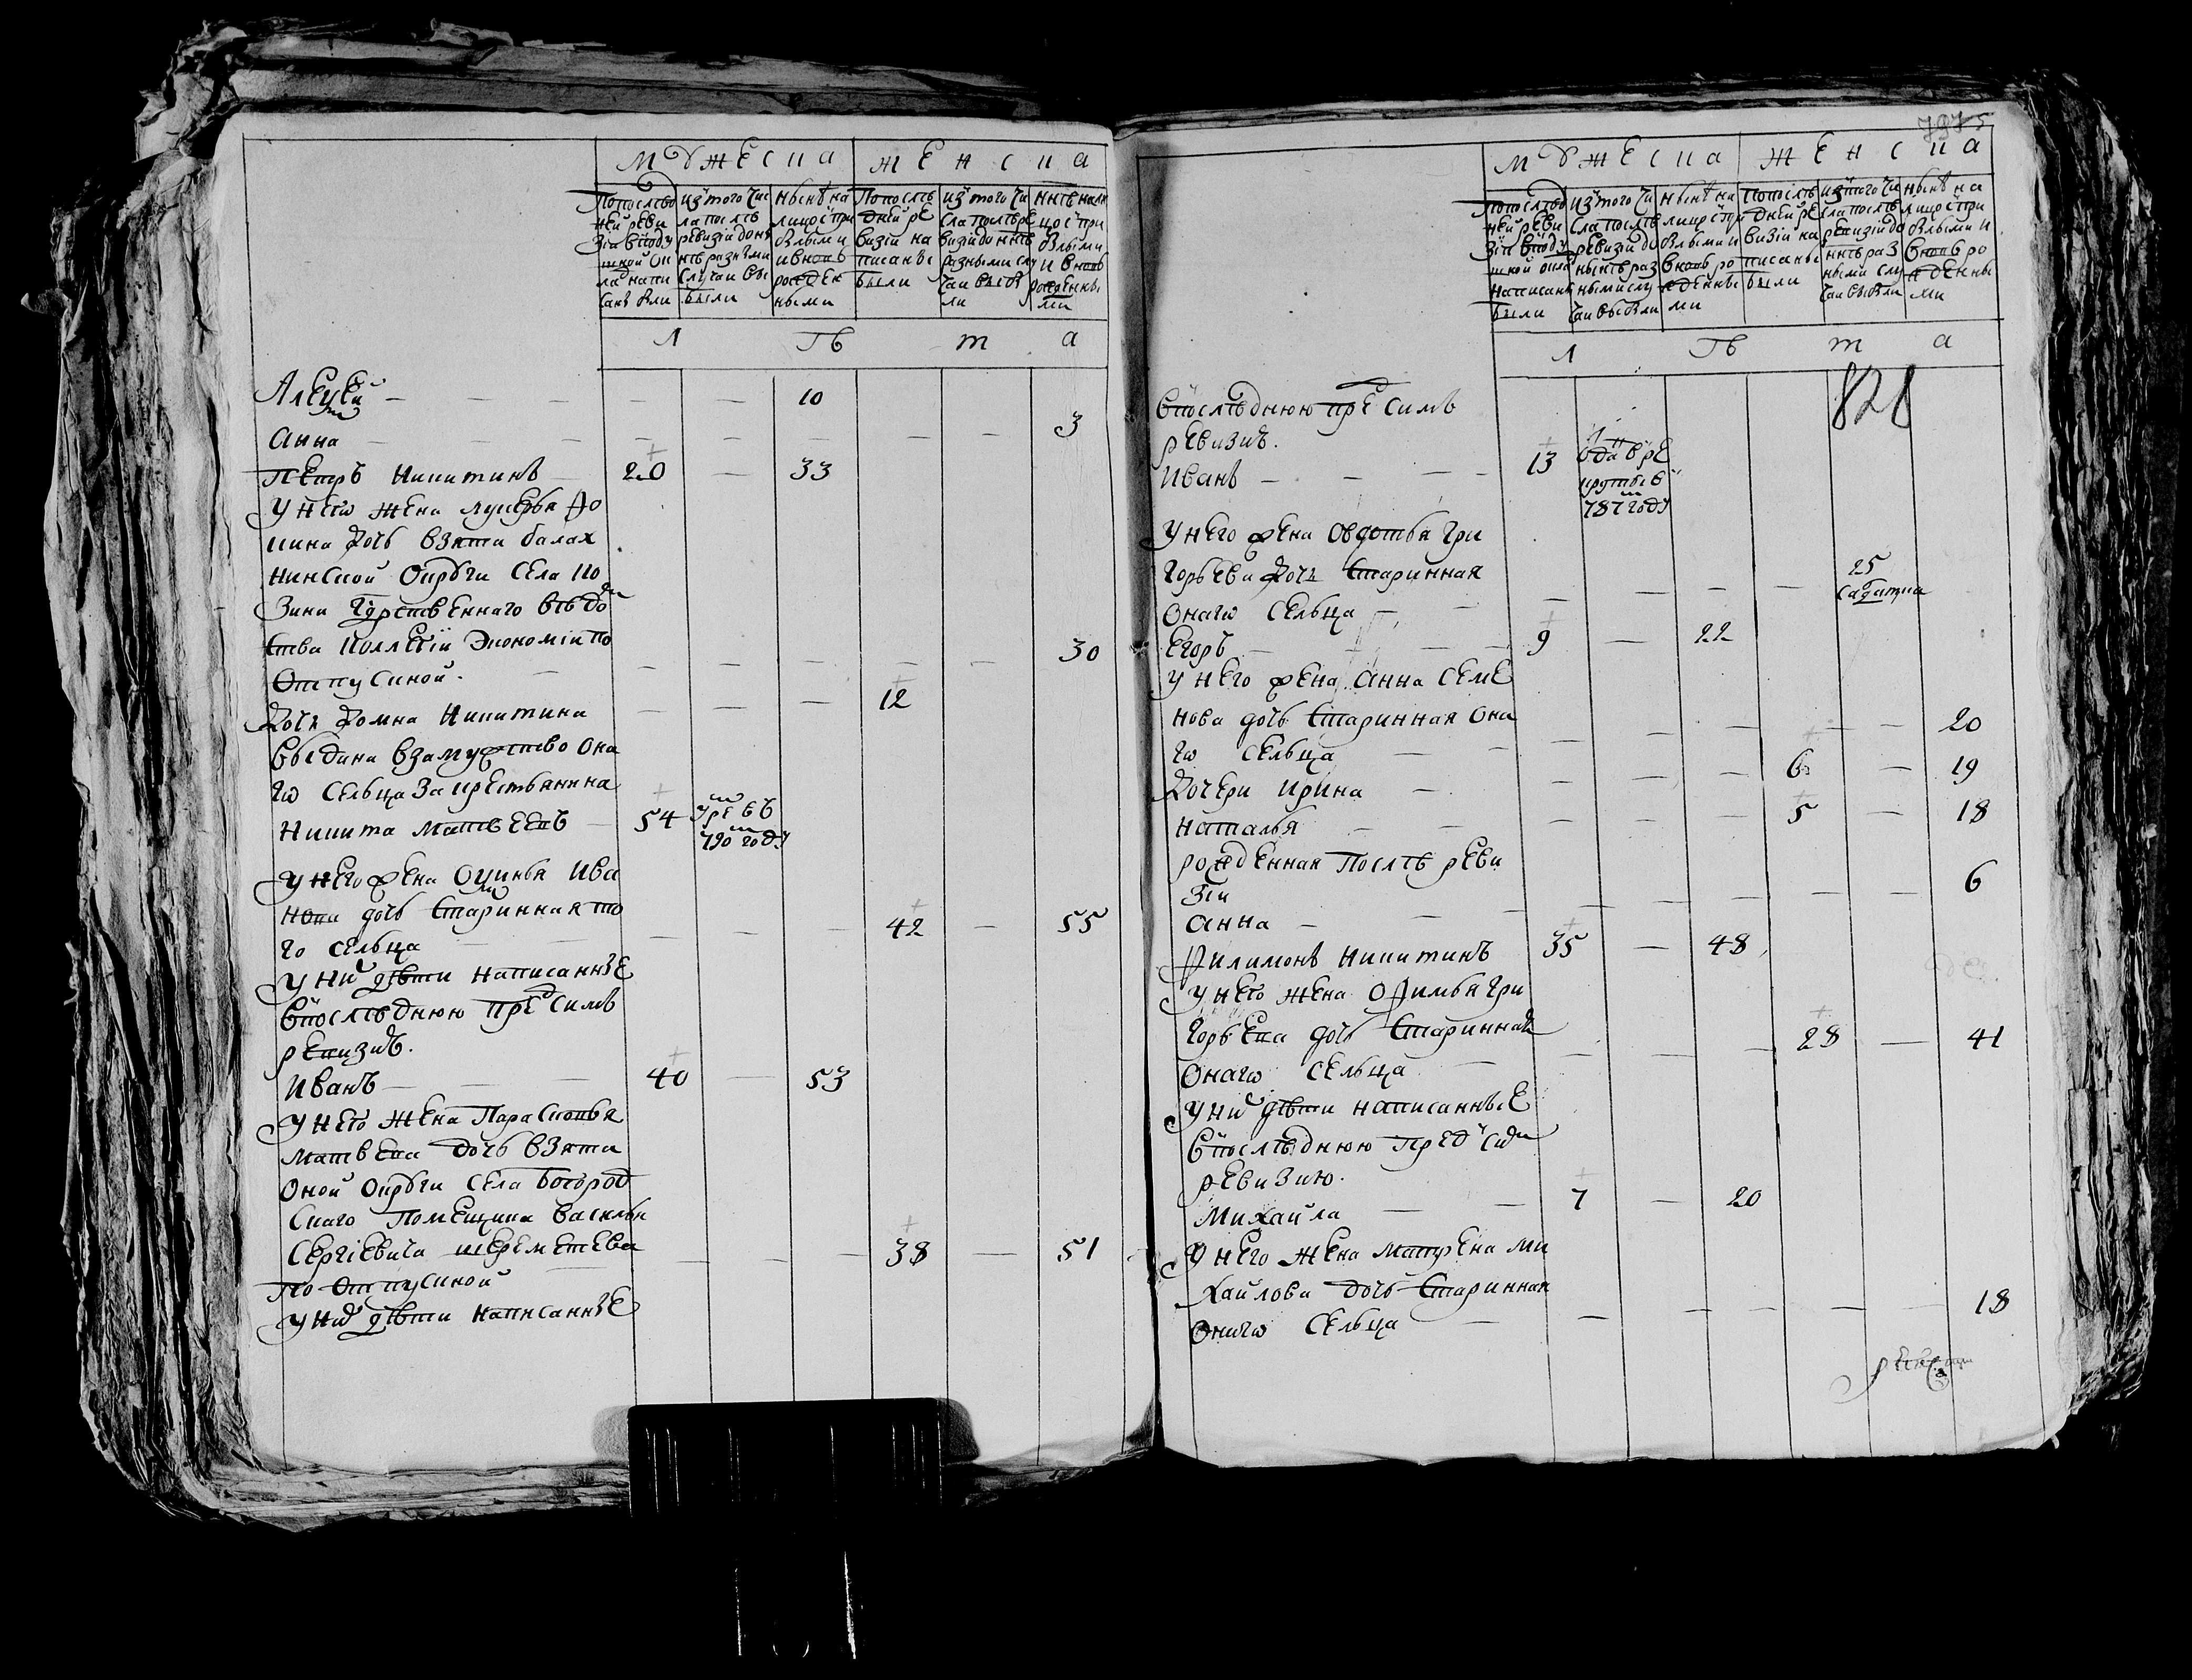 МУЖЕСКА ЖЕНСКА
По последней ревизии в подушной оклад написаны были
из того числа после ревизии до ныне разными случаи выбыли
ныне на лицо с прибылыми и вновь рожденными
По последней ревизии написаны были
из того числа после ревизии до ныне разными случаи выбыли
ныне на лицо с прибылыми и вновь рожденными
Л Ѣ т а
Алексей — — — — — 10
Анна — — — — — — — — 3
Петръ Никитинъ — 20 — 33
у него жена Лукерья Фо
кина дочь взята балах
нинской округи села Ко
зина
ства коллегiи Экономiи по
отпускной — — — — — — 30
Дочь Домна Никитина — — — 12
выдана взамужство она
го сельца за крестьянина
Никита Матвеевъ — 54 умре въ
790 году
у него жена Акулина Ива
нова дочь старинная то
го сельца — — — — 42 — 55
у них дѣти написанные
в последнюю пред симъ
ревизию.
Иванъ — — — 40 — 53
у него жена Парасковья
Матвева дочь взята
оной округи села Богород
скаго помещика Василья
Сергiевича Шереметева — — — 38 — 51
по отпускной
у них дѣти написанные
797 5
МУЖЕСКА ЖЕНСКА
По последней ревизии в подушной окладъ написаны были
из того числа после ревизии до ныне разными случаи выбыли
ныне на лицо с прибылыми и вновь рожденными
По последней ревизии написаны были
из того числа после ревизии до ныне разными случаи выбыли
ныне на лицо с прибылыми и вновь рожденными
Л Ѣ т а
821
в последнюю пред симъ
ревизию.
Иванъ — — — 13 отда в ре
круты в
787 году
у него жена Овдотья Гри
горьева дочь старинная
онаго сельца — — — — — — 25
солдатка
Егоръ — — — 9 — 22
у него жена Анна Семе
нова дочь старинная она
го сельца — — — — — — — 20
Дочери Ирина — — — — 6 — 19
Наталья — — — — — 5 — 18
рожденная после реви
зiи
Анна — — — — — — — 6
Филимонъ Никитинъ 35 — 48
у него жена Офимья Гри
горьева дочь старинная
онаго сельца — — — 28 — 41
у них дѣти написанные
в последнюю пред сим
ревизию.
Михайла — — 7 — 20
у него жена Матрена Ми
хайлова дочь старинная
онаго сельца — — — — — — 18